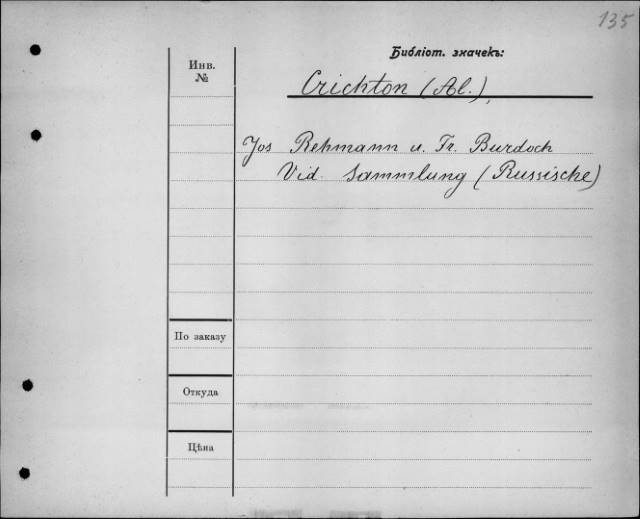 135
Библіот. значекъ:
Инв.
№
Crichton (Al.),
Jos Rehmann u. Fr. Burdoch
Vid. Sammlung (Russische)
По заказу
Откуда
Цѣна